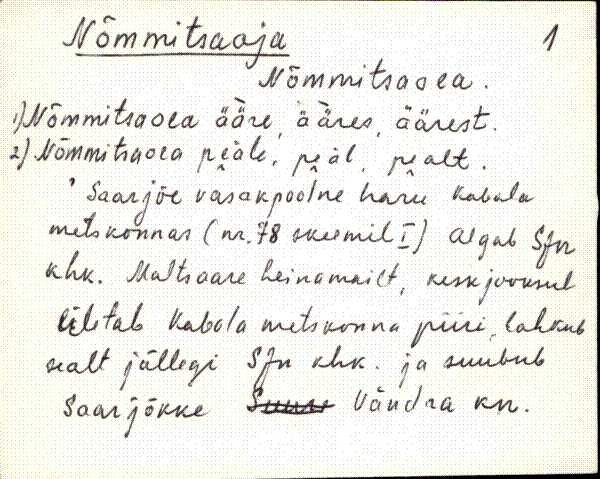 Nõmmitsaoja 1
Nõmmitsaoea.
1) Nõmmitsaoea ääre, ääres, äärest.
2) Nõmmitsaoea peäle, peäl, pealt.
Saarjõe vasakpoolne haru Kabala
metskonnas (nr. 78 skeemil I) Algab Sjn
khk. Maltsaare heinamailt, keskjooksul
ületab Kabala metskonna piiri, lahkub
sealt jällegi Sjn khk. ja suubub
Saarjõkke Suure Vändra kn.